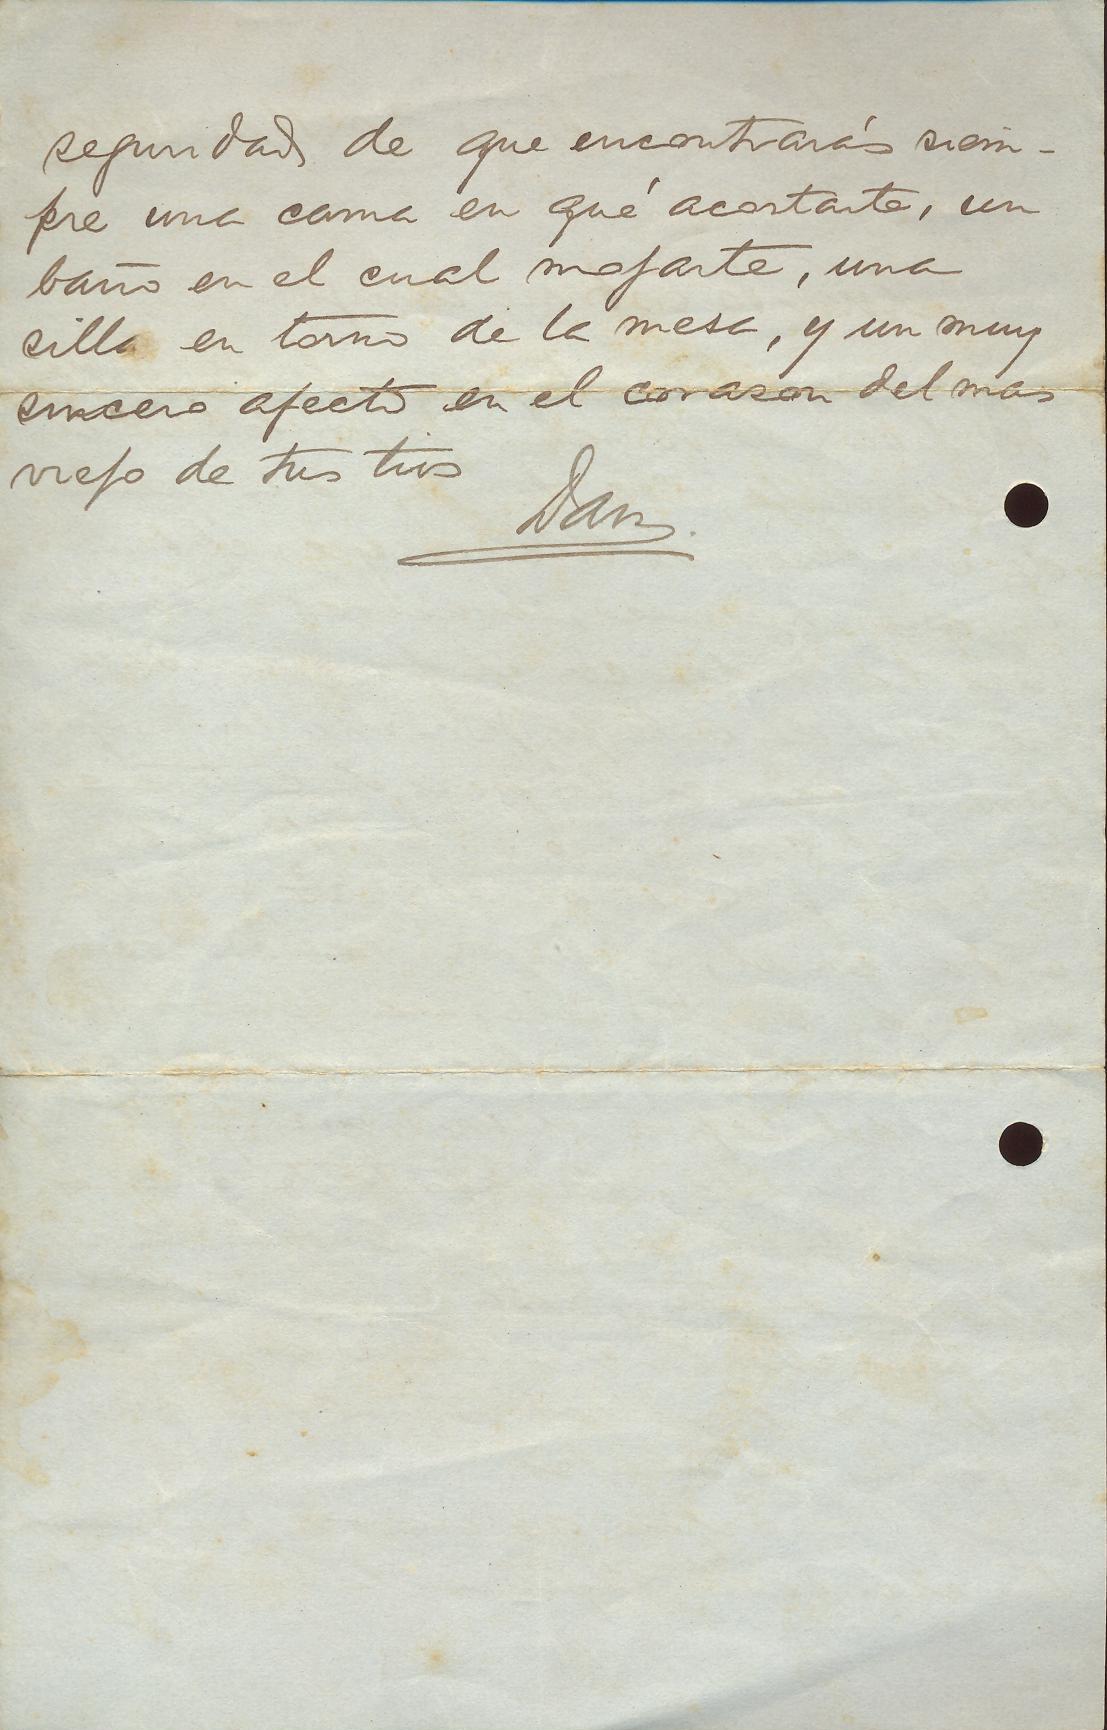 seguridad de que encontrarás siem-
pre una cama en qué acostarte, un
baño en el cual mojarte, una
silla en torno de la mesa, y un muy
sincero afecto en el corazon del mas
viejo de tus tios